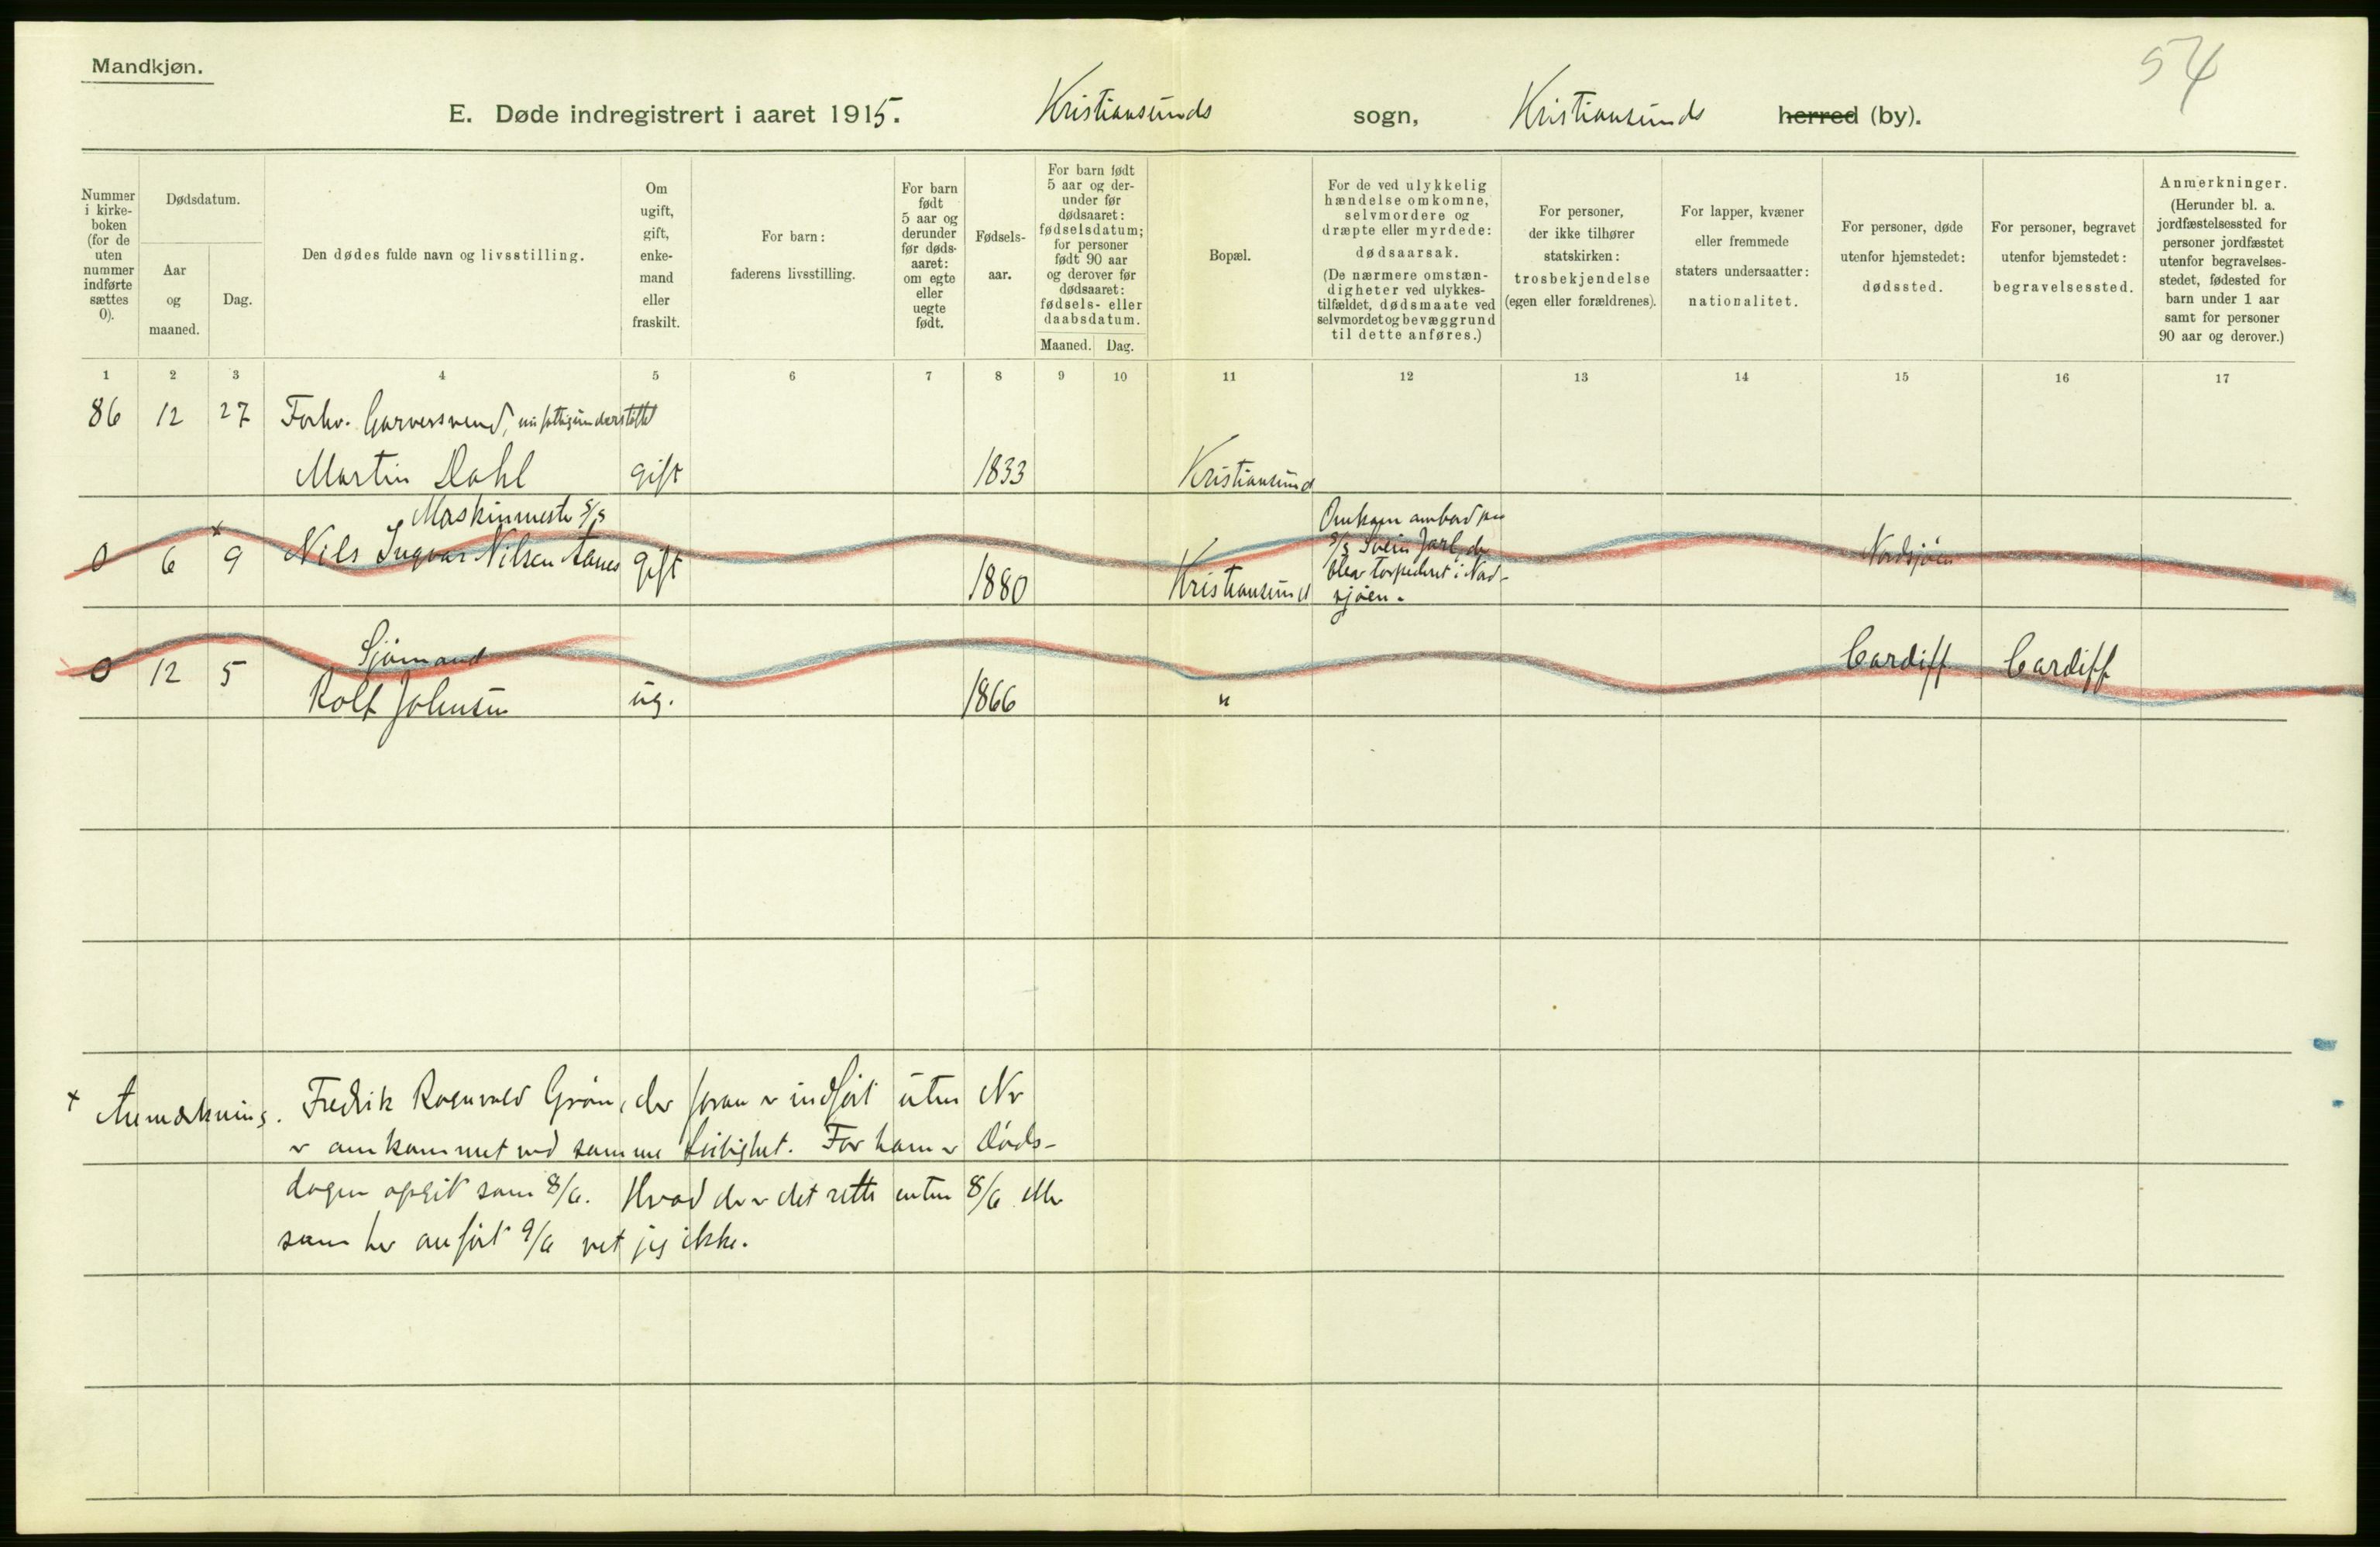 54
Mandkjøn.
E. Døde indregistrert i aaret 1915. Kristiansunds sogn, Kristiansunds herred (by).
Nummer i kirke- boken (for de uten nummer indførte sættes 0).
Dødsdatum.
Aar og maaned.
Dag.
Den dødes fulde navn og livsstilling.
Om ugift, gift, enke- mand eller fraskilt.
For barn: faderens livsstilling.
For barn født 5 aar og derunder før døds- aaret: om egte eller uegte født.
Fødsels- aar.
For barn født 5 aar og der- under før dødsaaret: fødselsdatum; for personer født 90 aar og derover før dødsaaret: fødsels- eller daabsdatum.
Maaned. Dag.
Bopæl.
For de ved ulykkelig hændelse omkomne, selvmordere og dræpte eller myrdede: dødsaarsak. (De nærmere omstæn- digheter ved ulykkes- tilfældet, dødsmaate ved selvmordet og bevæggrund til dette anføres.)
For personer, der ikke tilhører statskirken: trosbekjendelse (egen eller forældrenes).
For lapper, kvæner eller fremmede staters undersaatter: nationalitet.
For personer, døde utenfor hjemstedet: dødssted.
For personer, begravet utenfor bjemstedet: begravelsessted.
Anmerkninger. (Herunder bl. a. jordfæstelsessted for personer jordfæstet utenfor begravelses- stedet, fødested for barn under 1 aar samt for personer 90 aar og derover.)
1 2 3 4 5 6 7 8 9 10 11 12 13 14 15 16 17
86 12 27 Forhv. Garversvend, nu fattigunderstøttet
Martin Dahl gift 1833 Kristiansund
Maskinmester S/S
0 6 x 9 Nils Ingvar Nilsen Aanes gift 1880 Kristiansund
Omkom ombord paa
S/S Svein Jarl, der
blev torpederet i Nord-
sjøen.
Nordsjøen
Sjømand
0 12 5 Rolf Johnsen ug. 1866 " Cardiff Cardiff
x Anmærkning. Fredrik Rognvald Grøn, der foran er indført uten Nr
er omkommet ved samme leilighet. For ham er Døds-
dagen opgit som 8/6. Hvad der er det rette enten 8/6 eller
som her anført 9/6 vet jeg ikke.